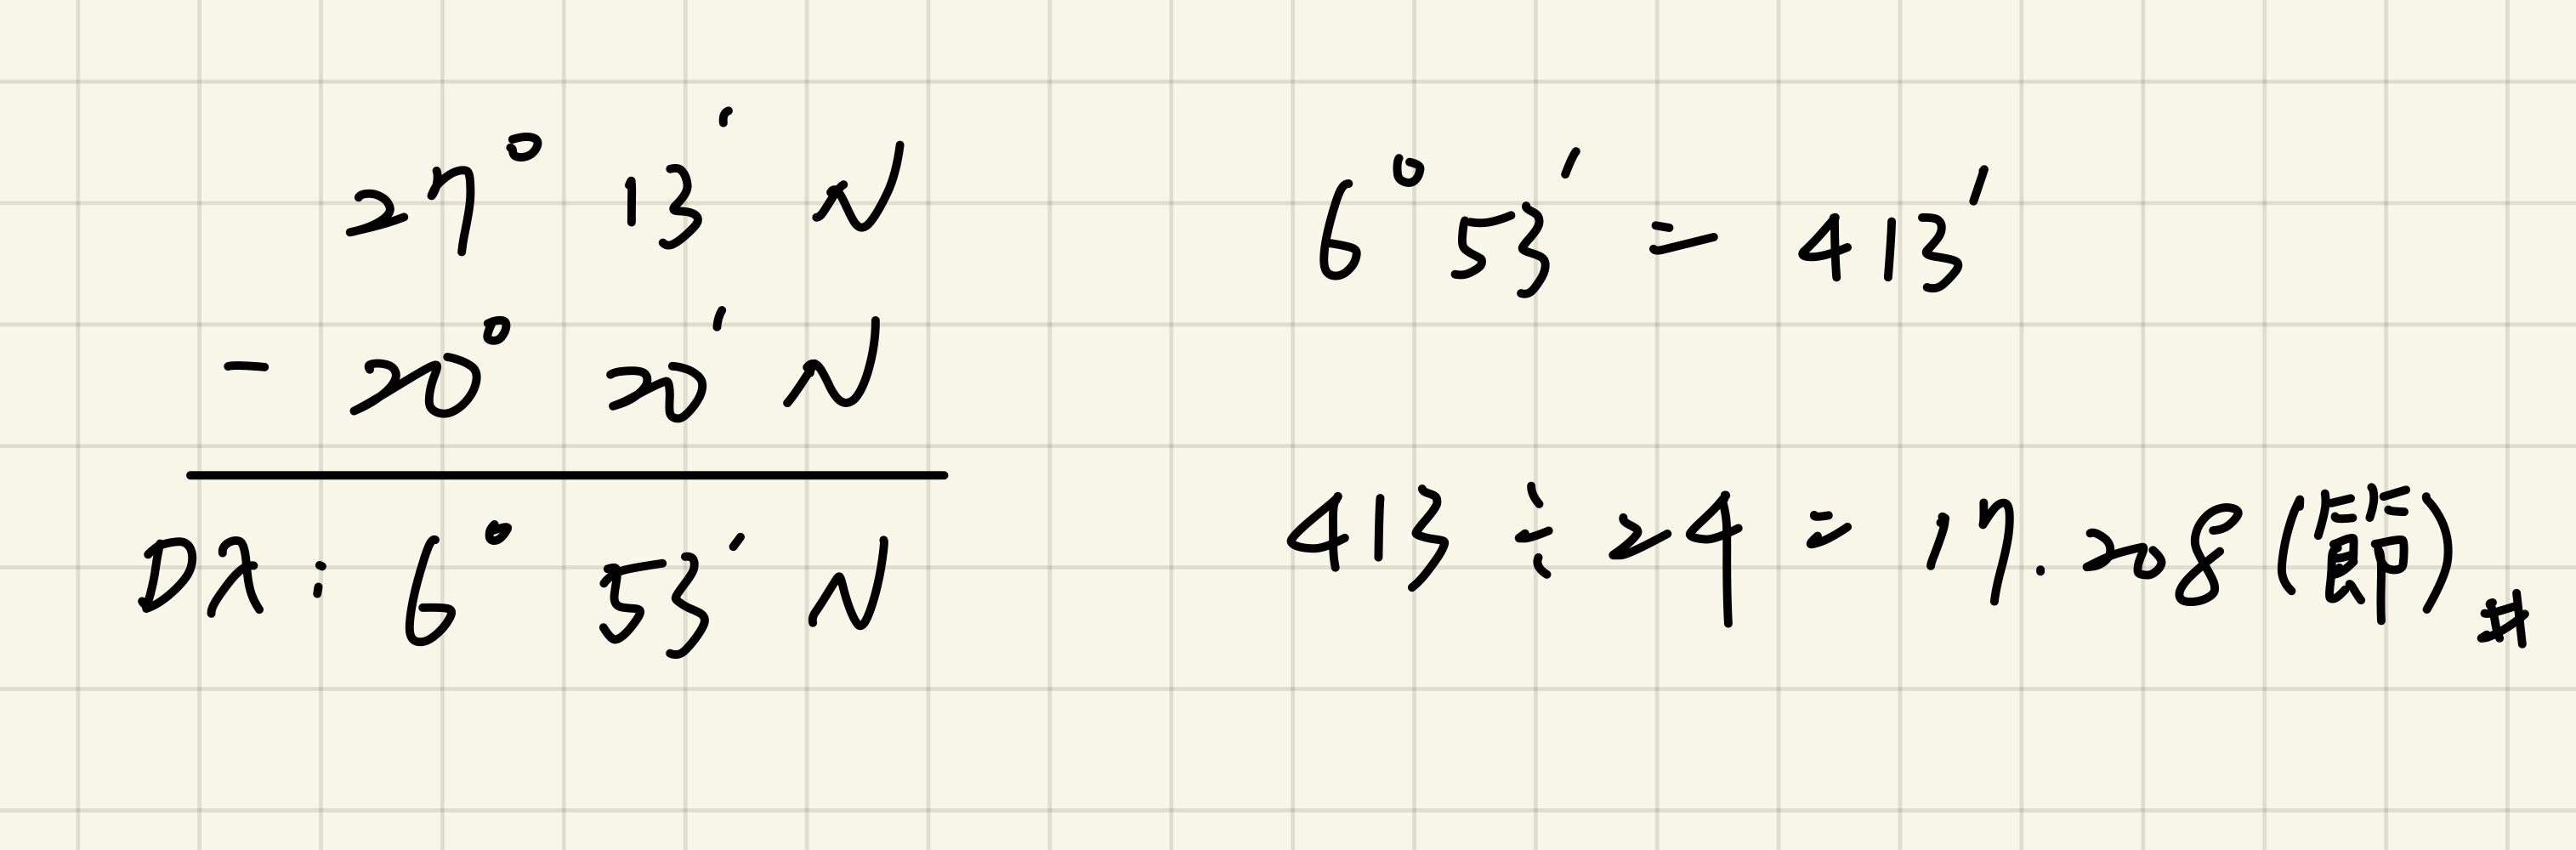 27° 13' N
- 20° 20' N
Dλ: 6° 53' N
6° 53' = 413'
413 ÷ 24 = 17.208 (節)#